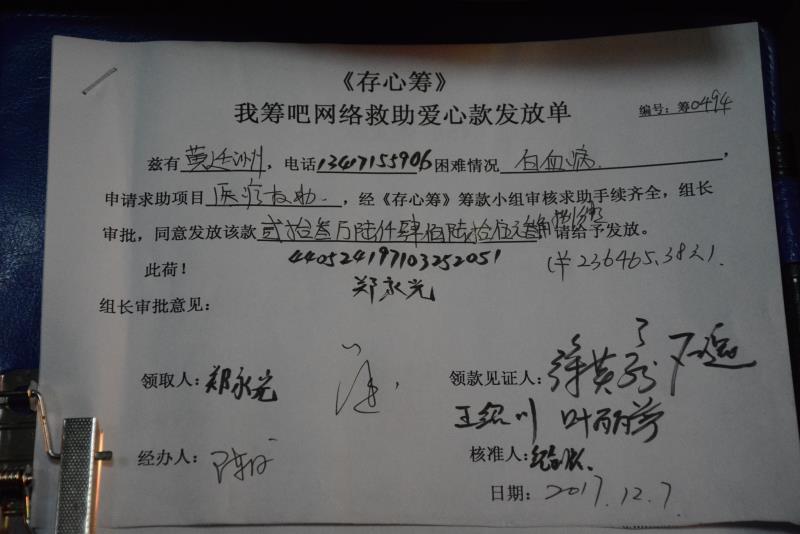 《存心筹》
我筹吧网络救助爱心款发放单
编号:筹0494
兹有 黄廷洲,电话13417155906困难情况 白血病 ,
申请求助项目 医疗救助 ,经《存心筹》筹款小组审核求助手续齐全,组长
审批,同意发放该款 贰拾叁万陆仟肆佰陆拾伍元叁角捌分 请给予发放。
此荷! 440524197103252051 (¥236465.38元).
组长审批意见: 郑永光
领取人:郑永光 领款见证人:徐英
王绍川 叶丽芳
经办人: 核准人:
日期: 2017.12.7